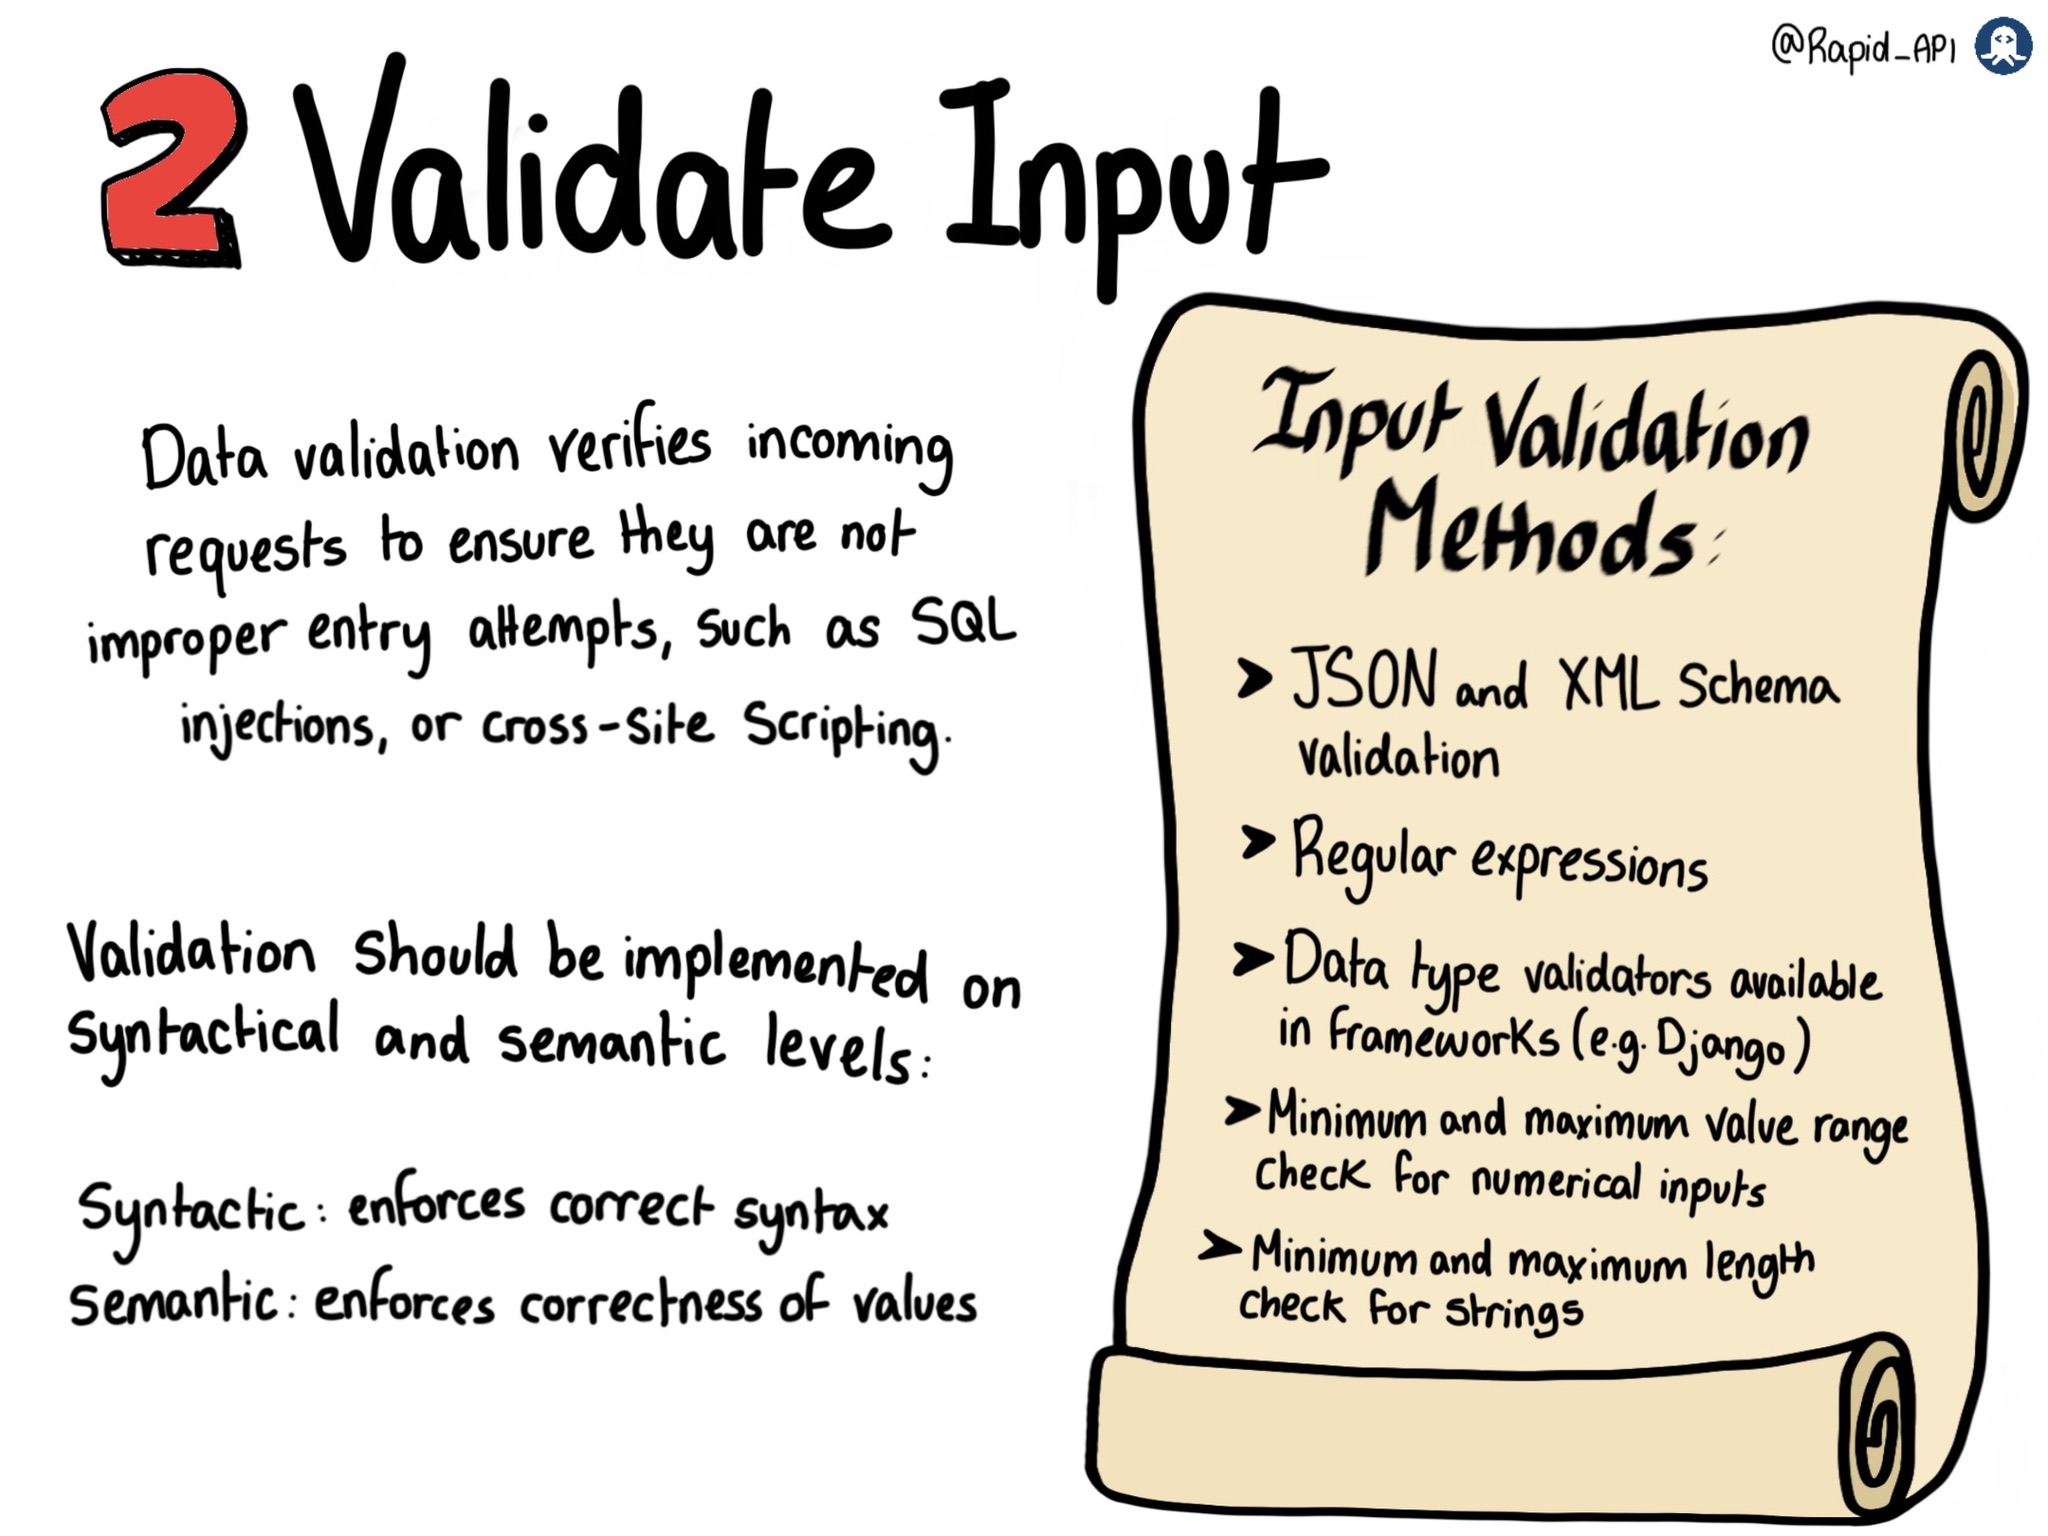 @Rapid_API
2 Validate Input
Data validation verifies incoming
requests to ensure they are not
improper entry attempts, such as SQL
injections, or cross-site scripting.
Validation should be implemented on
syntactical and semantic levels:
Syntactic: enforces correct syntax
Semantic: enforces correctness of values
Input Validation
Methods:
➤ JSON and XML Schema
validation
➤ Regular expressions
➤ Data type validators available
in frameworks (e.g. Django)
➤ Minimum and maximum value range
check for numerical inputs
➤ Minimum and maximum length
check for strings